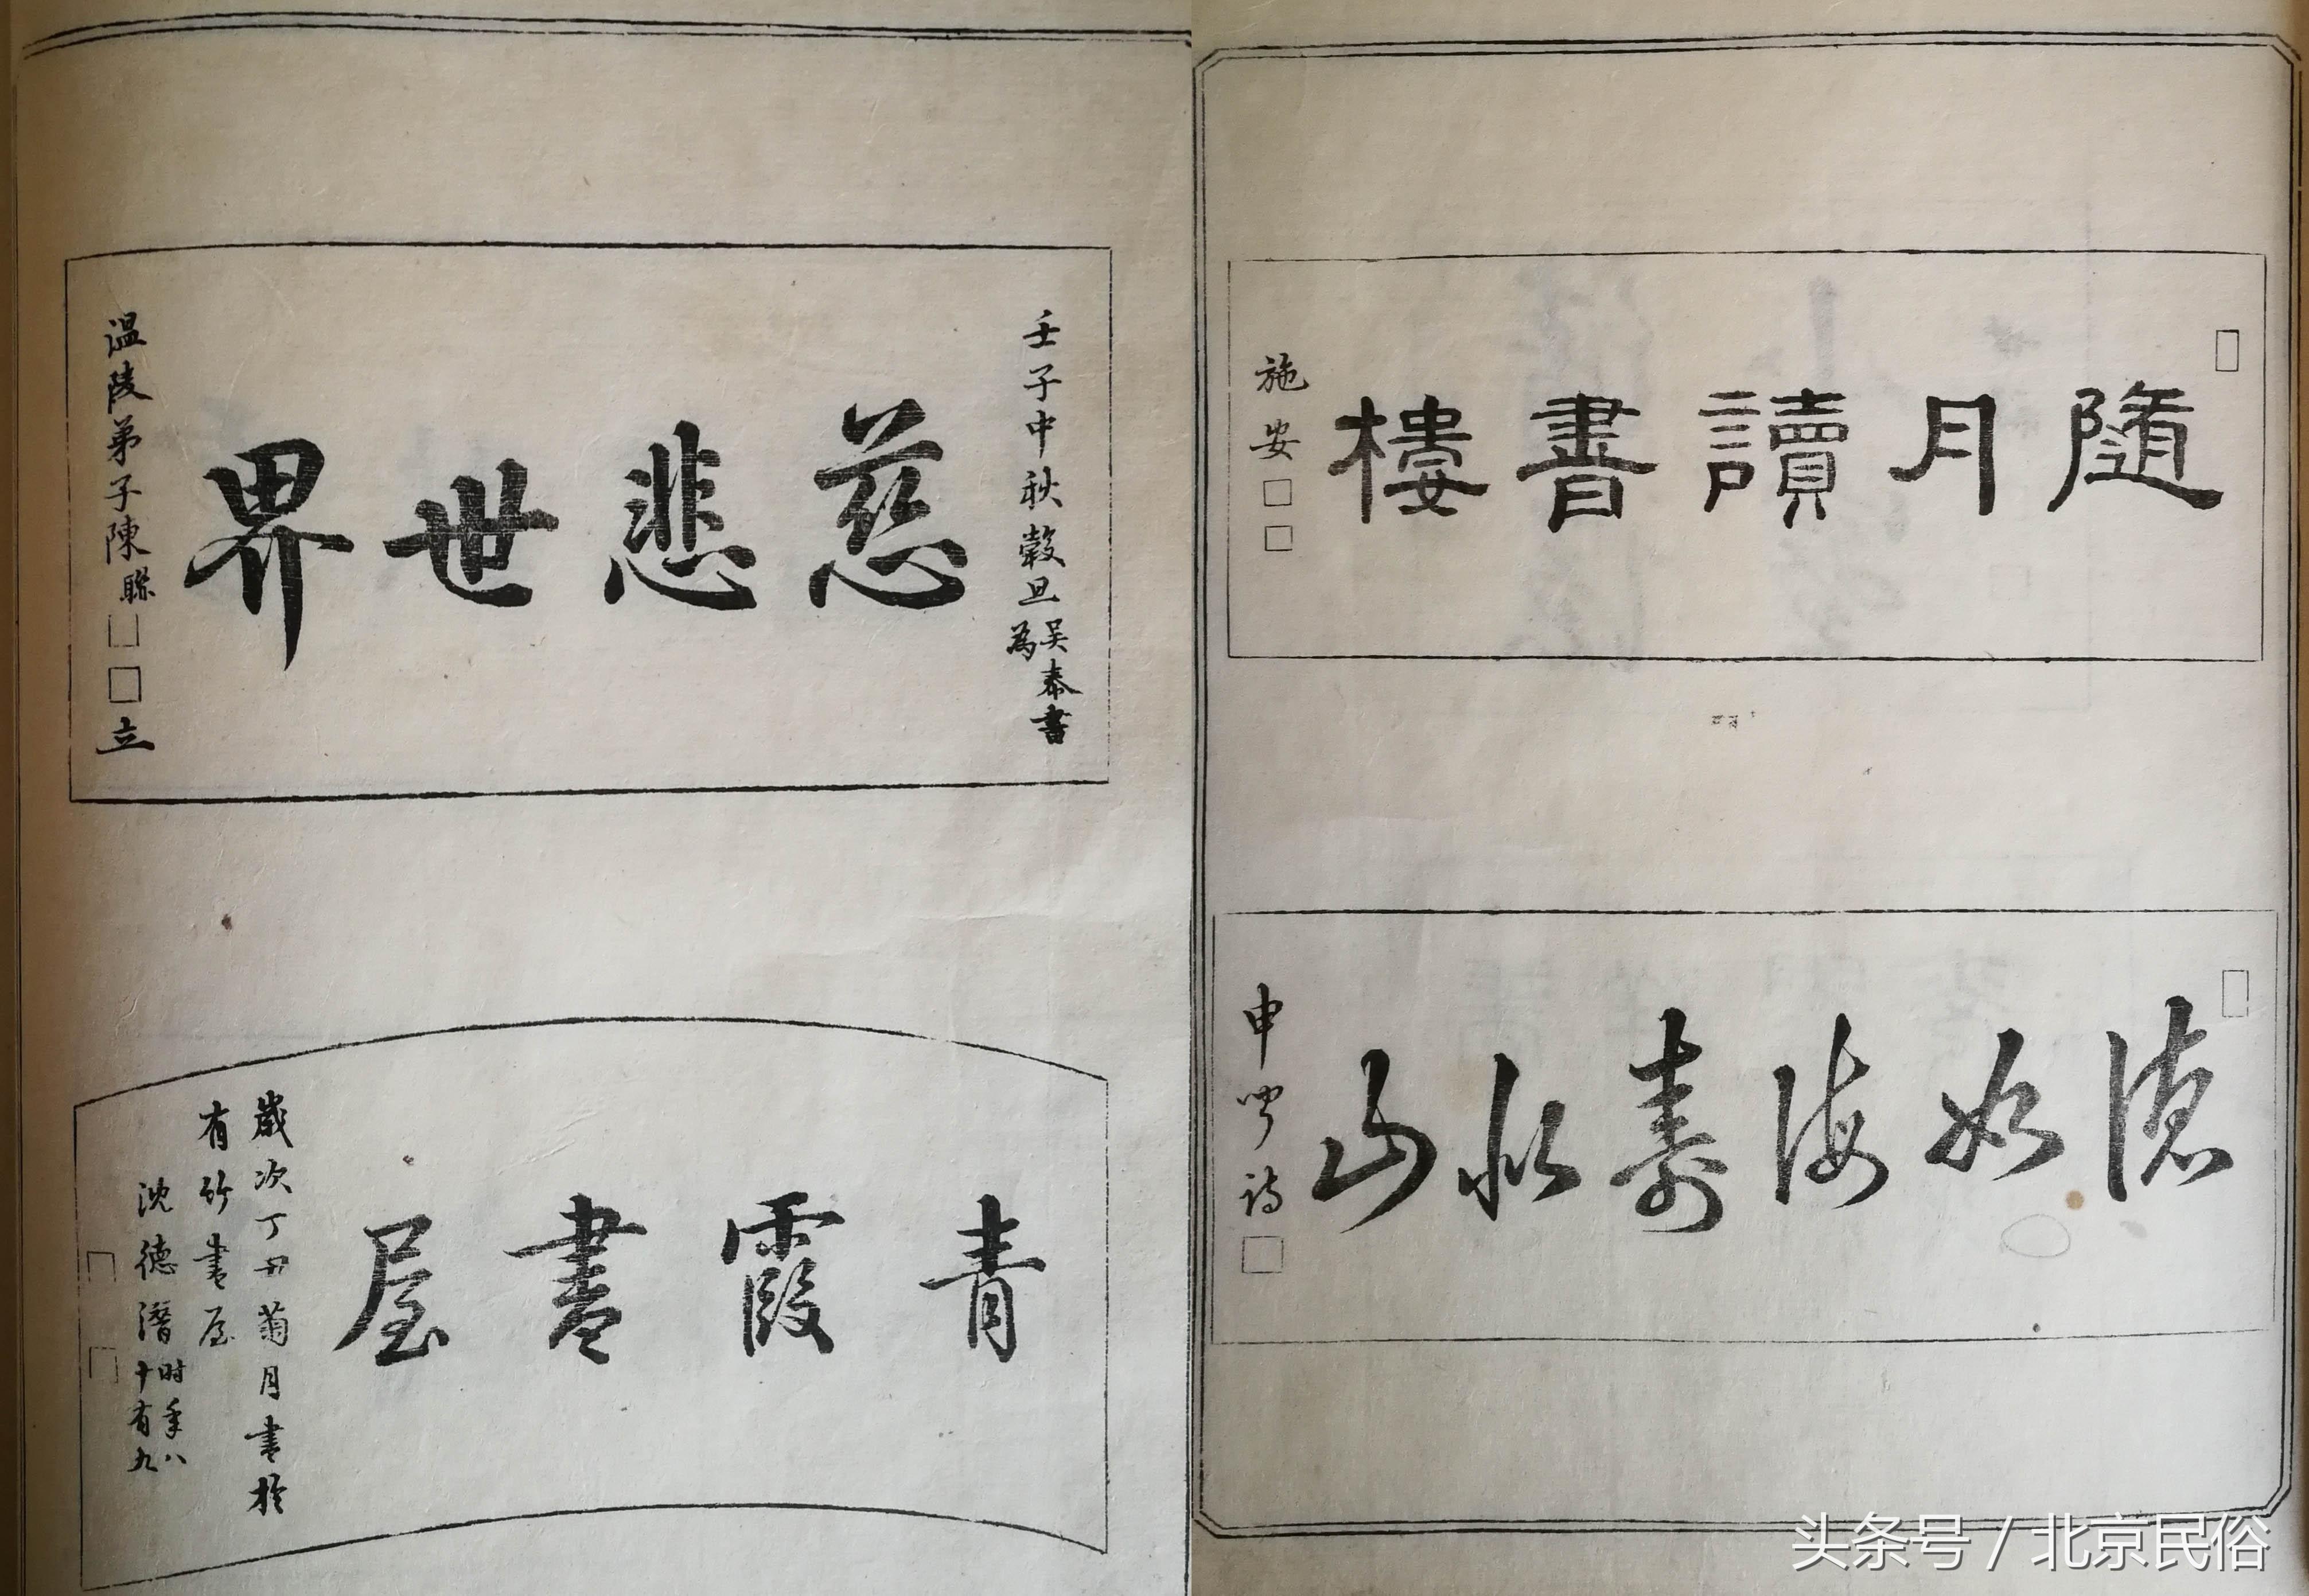 隨月讀書樓
施安
德如海壽似山
申
詩
壬子中秋穀旦
吳奉書
為
慈悲世界
溫陵弟子陳聯
立
青霞書屋
歲次丁丑菊月書於
有竹書屋
沈德潛
时年八
十有九
头条号 / 北京民俗